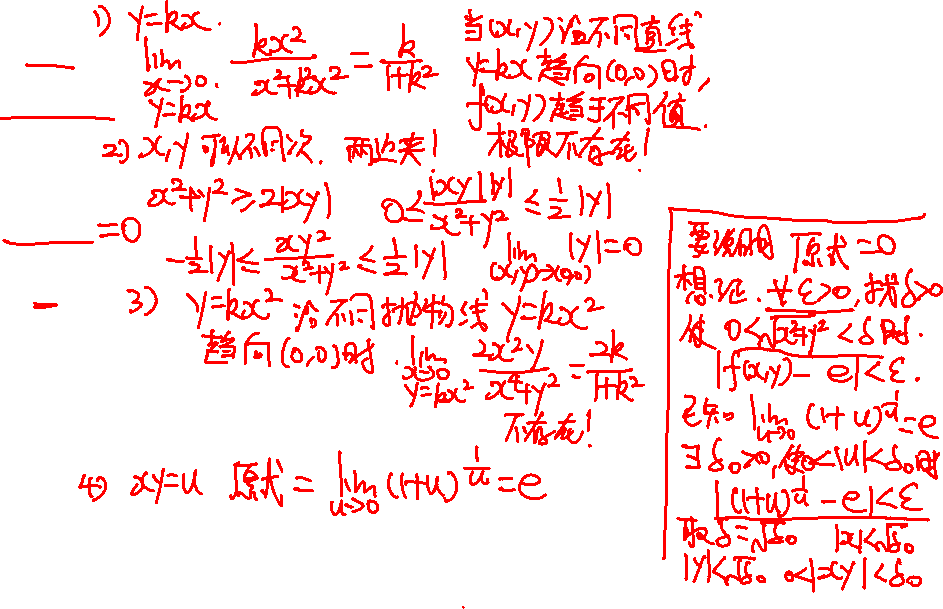 1) y=kx.
lim x→0. y=kx kx²/(x²+k²x²) = k/(1+k²)
当(x,y)沿不同直线
y=kx趋向(0,0)时,
f(x,y)趋于不同值.
极限不存在!
2) x,y可以不同次. 两边夹!
x²+y²≥2|xy| 0≤|xy||y|/(x²+y²)≤½|y|
=0
-½|y|≤xy²/(x²+y²)≤½|y| lim (x,y)→(0,0) |y|=0
3) y=kx² 沿不同抛物线 y=kx²
趋向(0,0)时. lim x→0 y=kx² 2x²y/(x⁴+y²) = 2k/(1+k²)
不存在!
4) xy=u 原式=lim u→0 (1+u)^(1/u)=e
要说明 原式=0
想证. ∀ε>0, 找δ>0
使 0<√(x²+y²)<δ时.
|f(x,y)-e|<ε.
已知 lim u→0 (1+u)^(1/u)=e
∃δ₀>0, 使0<|u|<δ₀时
|(1+u)^(1/u)-e|<ε
取δ=√δ₀ |x|<√δ₀
|y|<√δ₀ 0<|xy|<δ₀